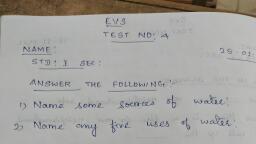 EVS
TEST NO: 4
NAME: 28.01.
STD: I SEC:
ANSWER THE FOLLOWING:
1) Name some sources of water.
2) Name any five uses of water.